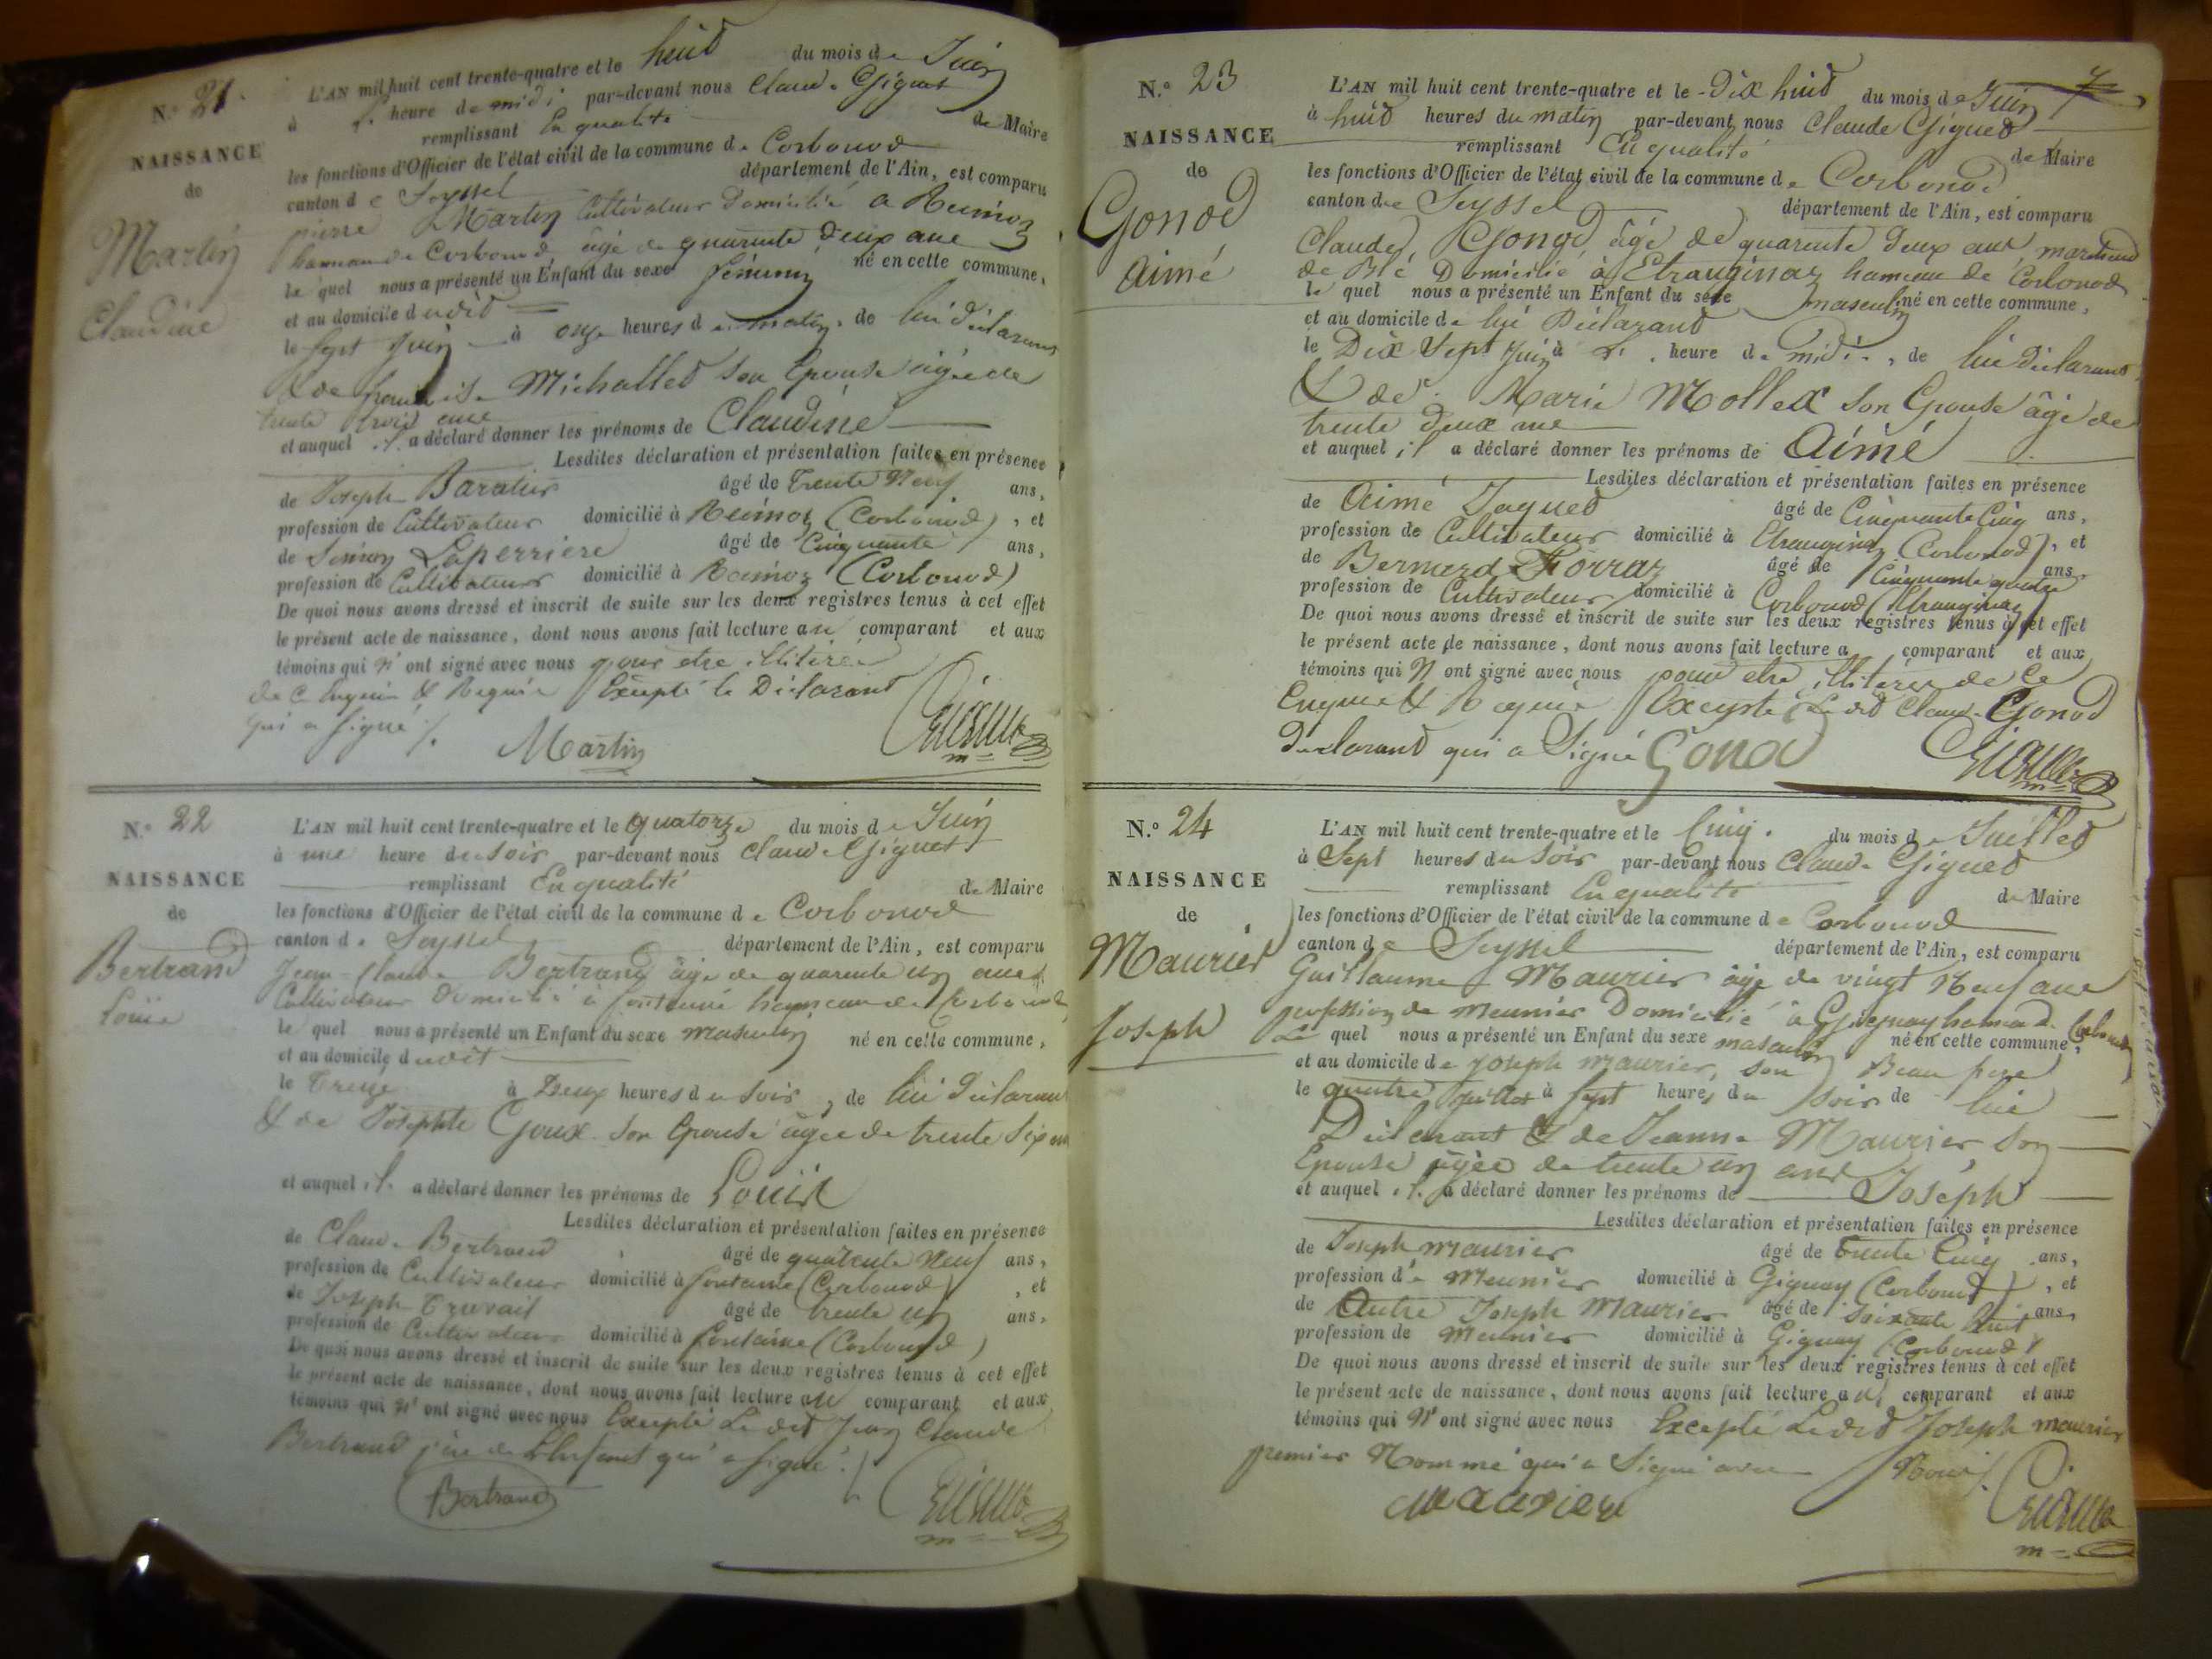 N.° 21.
NAISSANCE
de
Martin
Claudine
L'AN mil huit cent trente-quatre et le huit du mois de Juin
à l' heure de midi par-devant nous Claude Gignet
remplissant En qualité de Maire
les fonctions d'Officier de l'état civil de la commune de Corbonod
canton de Seyssel département de l'Ain, est comparu
pierre Martin Cultivateur Domicilié a
hameau de Corbonod, âgé de quarante deux ans
le quel nous a présenté un Enfant du sexe féminin né en cette commune,
et au domicile dudit
le sept Juin à onze heures du matin, de lui déclarant
& de françoise Michallet son Epouse âgée de
trente trois ans
et auquel il a déclaré donner les prénoms de Claudine
Lesdites déclaration et présentation faites en présence
de Joseph Baratier âgé de trente Neuf ans,
profession de Cultivateur domicilié à (Corbonod), et
de Simon Laperriere âgé de Cinquante ans,
profession de Cultivateur domicilié à (Corbonod)
De quoi nous avons dressé et inscrit de suite sur les deux registres tenus à cet effet
le présent acte de naissance, dont nous avons fait lecture au comparant et aux
témoins qui n' ont signé avec nous pour etre illiterés
de ce Enquis & Requis Excepté le Déclarant
qui a signé /.
Martin
N.° 22
NAISSANCE
de
Bertrand
Louis
L'AN mil huit cent trente-quatre et le quatorze du mois de Juin
à une heure du soir par-devant nous Claude Gignet
remplissant En qualité de Maire
les fonctions d'Officier de l'état civil de la commune de Corbonod
canton de Seyssel département de l'Ain, est comparu
Jean-Claude Bertrand âgé de quarante un ans
Cultivateur Domicilié à fontaine hameau de Corbonod
le quel nous a présenté un Enfant du sexe masculin né en cette commune,
et au domicile dudit
le Treize à Deux heures du soir, de lui déclarant
& de Josephte Goux son Epouse âgée de trente six ans
et auquel il a déclaré donner les prénoms de Louis
Lesdites déclaration et présentation faites en présence
de Claude Bertrand âgé de quarante Neuf ans,
profession de Cultivateur domicilié à fontaine (Corbonod), et
de Joseph Travail âgé de trente un ans,
profession de Cultivateur domicilié à fontaine (Corbonod)
De quoi nous avons dressé et inscrit de suite sur les deux registres tenus à cet effet
le présent acte de naissance, dont nous avons fait lecture au comparant et aux
témoins qui n' ont signé avec nous Excepté Le dit Jean Claude
Bertrand père de l'Enfant qui a signé /.
Bertrand
7
N.° 23
NAISSANCE
de
Gonod
Aimé
L'AN mil huit cent trente-quatre et le Dix huit du mois de Juin
à huit heures du matin par-devant nous Claude Gignet
remplissant En qualité de Maire
les fonctions d'Officier de l'état civil de la commune de Corbonod
canton de Seyssel département de l'Ain, est comparu
Claude Gonod, âgé de quarante deux ans, marchand
de Blé Domicilié à Etranginaz hameau de Corbonod
le quel nous a présenté un Enfant du sexe masculin né en cette commune,
et au domicile de lui Déclarant
le Dix Sept Juin à l' heure de midi, de lui déclarant
& de Marie Mollex son Epouse âgé de
trente deux ans
et auquel il a déclaré donner les prénoms de Aimé
Lesdites déclaration et présentation faites en présence
de Aimé Jaquet âgé de Cinquante Cinq ans,
profession de Cultivateur domicilié à Etranginaz (Corbonod), et
de Bernard Forraz âgé de Cinquante quatre ans,
profession de Cultivateur domicilié à Corbonod (Etranginaz)
De quoi nous avons dressé et inscrit de suite sur les deux registres tenus à cet effet
le présent acte de naissance, dont nous avons fait lecture a comparant et aux
témoins qui N ont signé avec nous pour etre illiterés de Ce
Enquis & Requis Excepté Le dit Claude Gonod
Déclarant qui a Signé Gonod
N.° 24
NAISSANCE
de
Maurier
Joseph
L'AN mil huit cent trente-quatre et le Cinq. du mois de Juillet
à Sept heures du soir par-devant nous Claude Gignet
remplissant En qualité de Maire
les fonctions d'Officier de l'état civil de la commune de Corbonod
canton de Seyssel département de l'Ain, est comparu
Guillaume Maurier âgé de vingt Neuf ans
profession de meunier Domicilié à Gignay hameau de Corbonod
Le quel nous a présenté un Enfant du sexe masculin né en cette commune,
et au domicile de Joseph maurier, son Beau frere
le quatre Juillet à sept heures du soir de lui
Déclarant & de Jeanne Maurier son
Epouse âgée de trente un ans
et auquel il a déclaré donner les prénoms de Joseph
Lesdites déclaration et présentation faites en présence
de Joseph maurier âgé de trente Cinq ans,
profession de Meunier domicilié à Gignay (Corbonod), et
de Autre Joseph Maurier âgé de soixante huit ans,
profession de meunier domicilié à Gignay (Corbonod)
De quoi nous avons dressé et inscrit de suite sur les deux registres tenus à cet effet
le présent acte de naissance, dont nous avons fait lecture au comparant et aux
témoins qui N' ont signé avec nous Excepté Le dit Joseph maurier
premier Nommé qui a Signé avec Nous /.
maurier